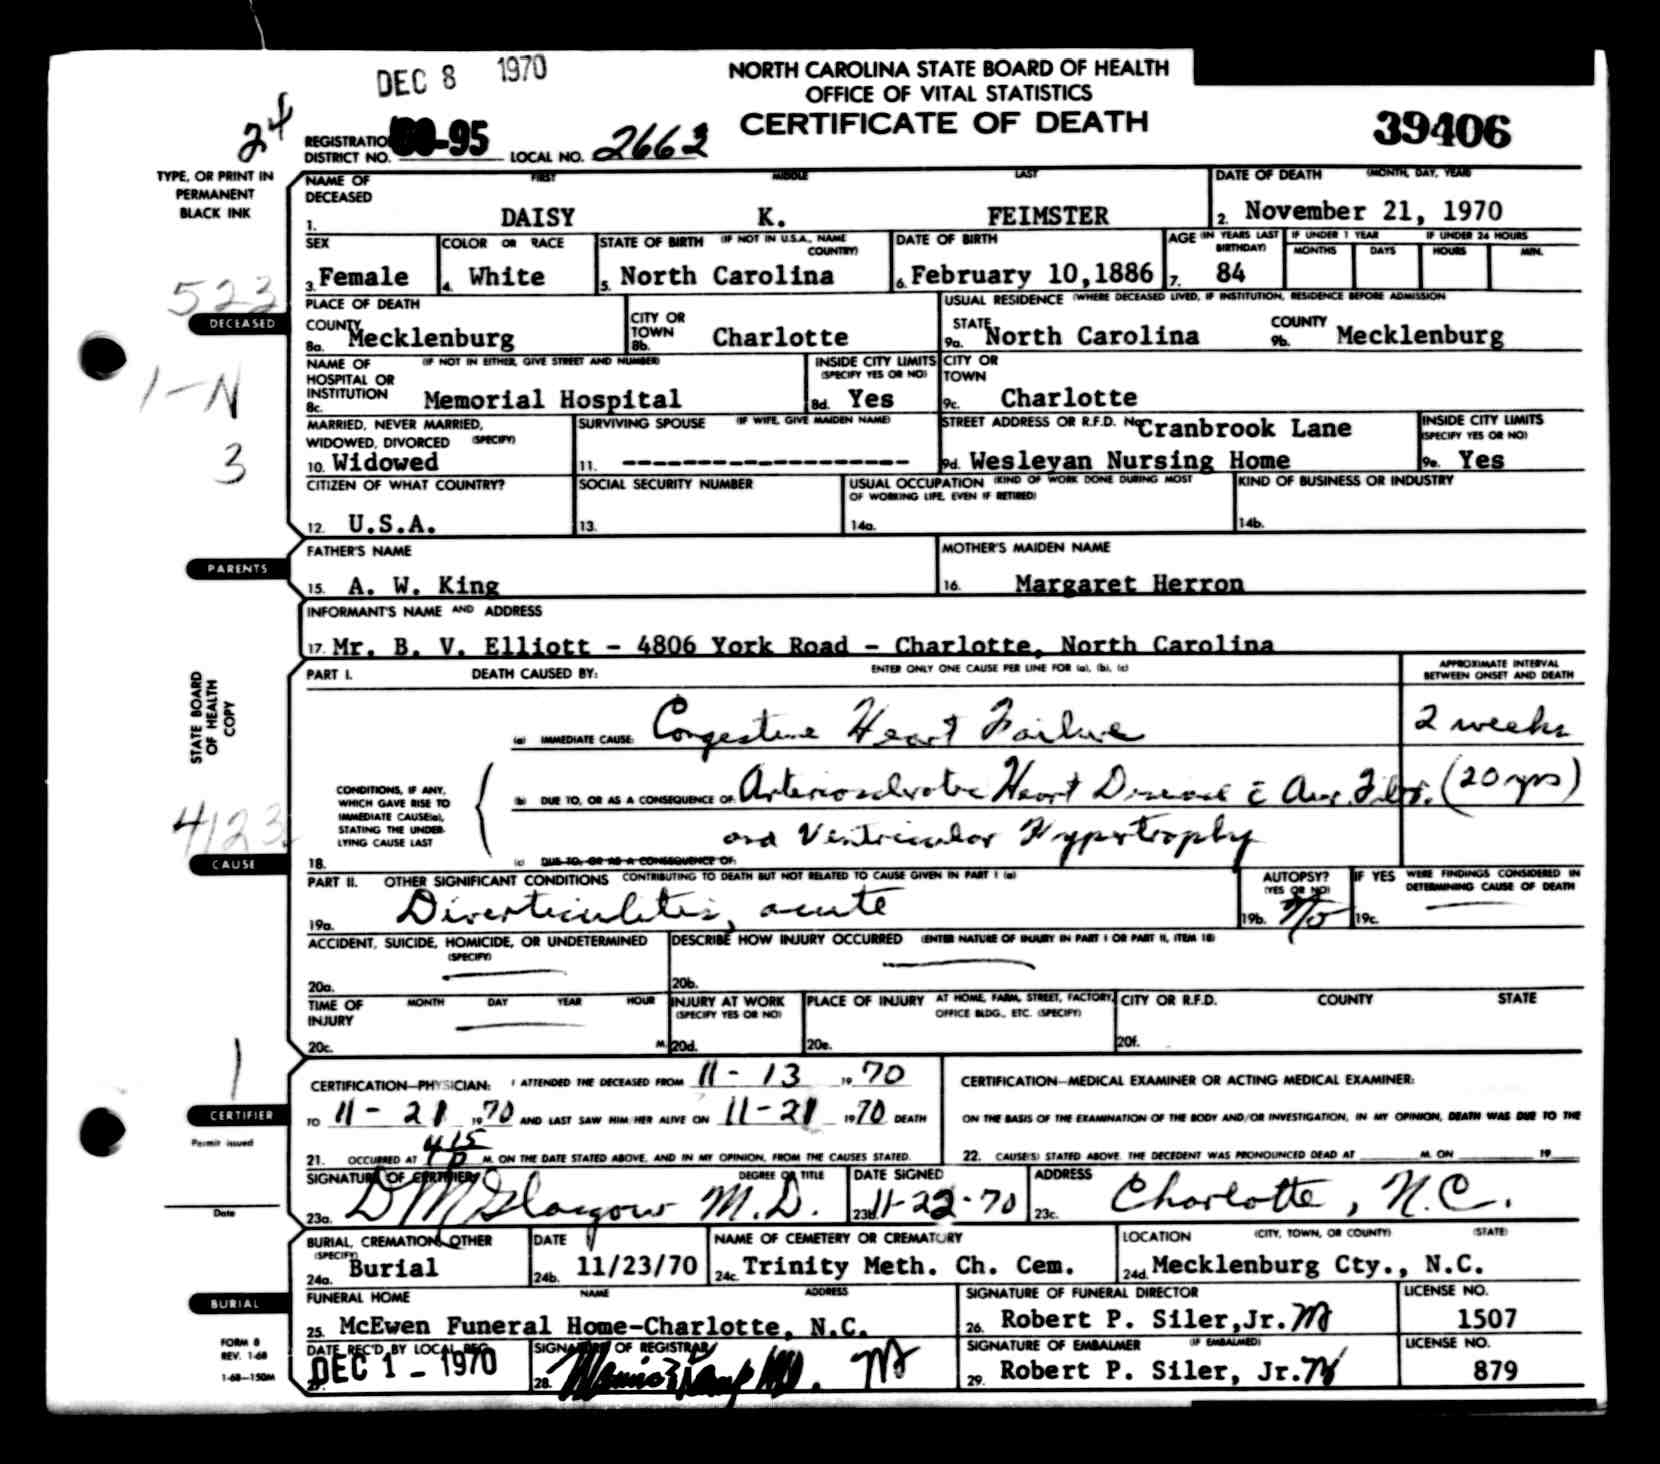 DEC 8 1970
NORTH CAROLINA STATE BOARD OF HEALTH
OFFICE OF VITAL STATISTICS
CERTIFICATE OF DEATH
39406
24
REGISTRATION DISTRICT NO. -95 LOCAL NO. 2663
TYPE, OR PRINT IN
PERMANENT
BLACK INK
NAME OF DECEASED FIRST MIDDLE LAST
1. DAISY K. FEIMSTER
DATE OF DEATH (MONTH, DAY, YEAR)
2. November 21, 1970
SEX
3. Female
COLOR OR RACE
4. White
STATE OF BIRTH (IF NOT IN U.S.A., NAME COUNTRY)
5. North Carolina
DATE OF BIRTH
6. February 10,1886
AGE (IN YEARS LAST BIRTHDAY)
7. 84
IF UNDER 1 YEAR
MONTHS DAYS
IF UNDER 24 HOURS
HOURS MIN.
523
DECEASED
1-N
3
PLACE OF DEATH
COUNTY
8a. Mecklenburg
CITY OR TOWN
8b. Charlotte
USUAL RESIDENCE (WHERE DECEASED LIVED, IF INSTITUTION, RESIDENCE BEFORE ADMISSION
STATE
9a. North Carolina
COUNTY
9b. Mecklenburg
NAME OF HOSPITAL OR INSTITUTION (IF NOT IN EITHER, GIVE STREET AND NUMBER)
8c. Memorial Hospital
INSIDE CITY LIMITS (SPECIFY YES OR NO)
8d. Yes
CITY OR TOWN
9c. Charlotte
MARRIED, NEVER MARRIED, WIDOWED, DIVORCED (SPECIFY)
10. Widowed
SURVIVING SPOUSE (IF WIFE, GIVE MAIDEN NAME)
11. ------------------
STREET ADDRESS OR R.F.D. No. Cranbrook Lane
9d. Wesleyan Nursing Home
INSIDE CITY LIMITS (SPECIFY YES OR NO)
9e. Yes
CITIZEN OF WHAT COUNTRY?
12. U.S.A.
SOCIAL SECURITY NUMBER
13.
USUAL OCCUPATION (KIND OF WORK DONE DURING MOST OF WORKING LIFE, EVEN IF RETIRED)
14a.
KIND OF BUSINESS OR INDUSTRY
14b.
PARENTS
FATHER'S NAME
15. A. W. King
MOTHER'S MAIDEN NAME
16. Margaret Herron
INFORMANT'S NAME AND ADDRESS
17. Mr. B. V. Elliott - 4806 York Road - Charlotte, North Carolina
STATE BOARD
OF HEALTH
COPY
PART I. DEATH CAUSED BY: ENTER ONLY ONE CAUSE PER LINE FOR (a), (b), (c)
APPROXIMATE INTERVAL BETWEEN ONSET AND DEATH
(a) IMMEDIATE CAUSE: Congestive Heart Failure 2 weeks
CONDITIONS, IF ANY, WHICH GAVE RISE TO IMMEDIATE CAUSE(a), STATING THE UNDERLYING CAUSE LAST
(b) DUE TO, OR AS A CONSEQUENCE OF: Arteriosclerotic Heart Disease c̄ Aur. Fibr. (20 yrs)
and Ventricular Hypertrophy
18. (c) DUE TO, OR AS A CONSEQUENCE OF:
4123
CAUSE
PART II. OTHER SIGNIFICANT CONDITIONS CONTRIBUTING TO DEATH BUT NOT RELATED TO CAUSE GIVEN IN PART I (a)
19a. Diverticulitis, acute
AUTOPSY? (YES OR NO)
19b. No
IF YES WERE FINDINGS CONSIDERED IN DETERMINING CAUSE OF DEATH
19c.
ACCIDENT, SUICIDE, HOMICIDE, OR UNDETERMINED (SPECIFY)
20a.
DESCRIBE HOW INJURY OCCURRED (ENTER NATURE OF INJURY IN PART I OR PART II, ITEM 18)
20b.
TIME OF INJURY MONTH DAY YEAR HOUR
20c. M.
INJURY AT WORK (SPECIFY YES OR NO)
20d.
PLACE OF INJURY AT HOME, FARM, STREET, FACTORY, OFFICE BLDG., ETC. (SPECIFY)
20e.
CITY OR R.F.D. COUNTY STATE
20f.
1
CERTIFIER
Permit issued
Date
CERTIFICATION—PHYSICIAN: I ATTENDED THE DECEASED FROM 11-13 1970
TO 11-21 1970 AND LAST SAW HIM/HER ALIVE ON 11-21 1970 DEATH
21. OCCURRED AT 415 P M. ON THE DATE STATED ABOVE, AND IN MY OPINION, FROM THE CAUSES STATED.
CERTIFICATION—MEDICAL EXAMINER OR ACTING MEDICAL EXAMINER:
ON THE BASIS OF THE EXAMINATION OF THE BODY AND/OR INVESTIGATION, IN MY OPINION, DEATH WAS DUE TO THE
22. CAUSE(S) STATED ABOVE. THE DECEDENT WAS PRONOUNCED DEAD AT M. ON 19
SIGNATURE OF CERTIFIER DEGREE OR TITLE
23a. D M Glasgow M.D.
DATE SIGNED
23b. 11-22-70
ADDRESS
23c. Charlotte, N.C.
BURIAL, CREMATION, OTHER (SPECIFY)
24a. Burial
DATE
24b. 11/23/70
NAME OF CEMETERY OR CREMATORY
24c. Trinity Meth. Ch. Cem.
LOCATION (CITY, TOWN, OR COUNTY) (STATE)
24d. Mecklenburg Cty., N.C.
BURIAL
FUNERAL HOME NAME ADDRESS
25. McEwen Funeral Home-Charlotte, N.C.
SIGNATURE OF FUNERAL DIRECTOR
26. Robert P. Siler,Jr.
LICENSE NO.
1507
FORM 8
REV. 1-68
1-68—150M
DATE REC'D BY LOCAL REG.
27. DEC 1 - 1970
SIGNATURE OF REGISTRAR
28.
SIGNATURE OF EMBALMER (IF EMBALMED)
29. Robert P. Siler, Jr.
LICENSE NO.
879